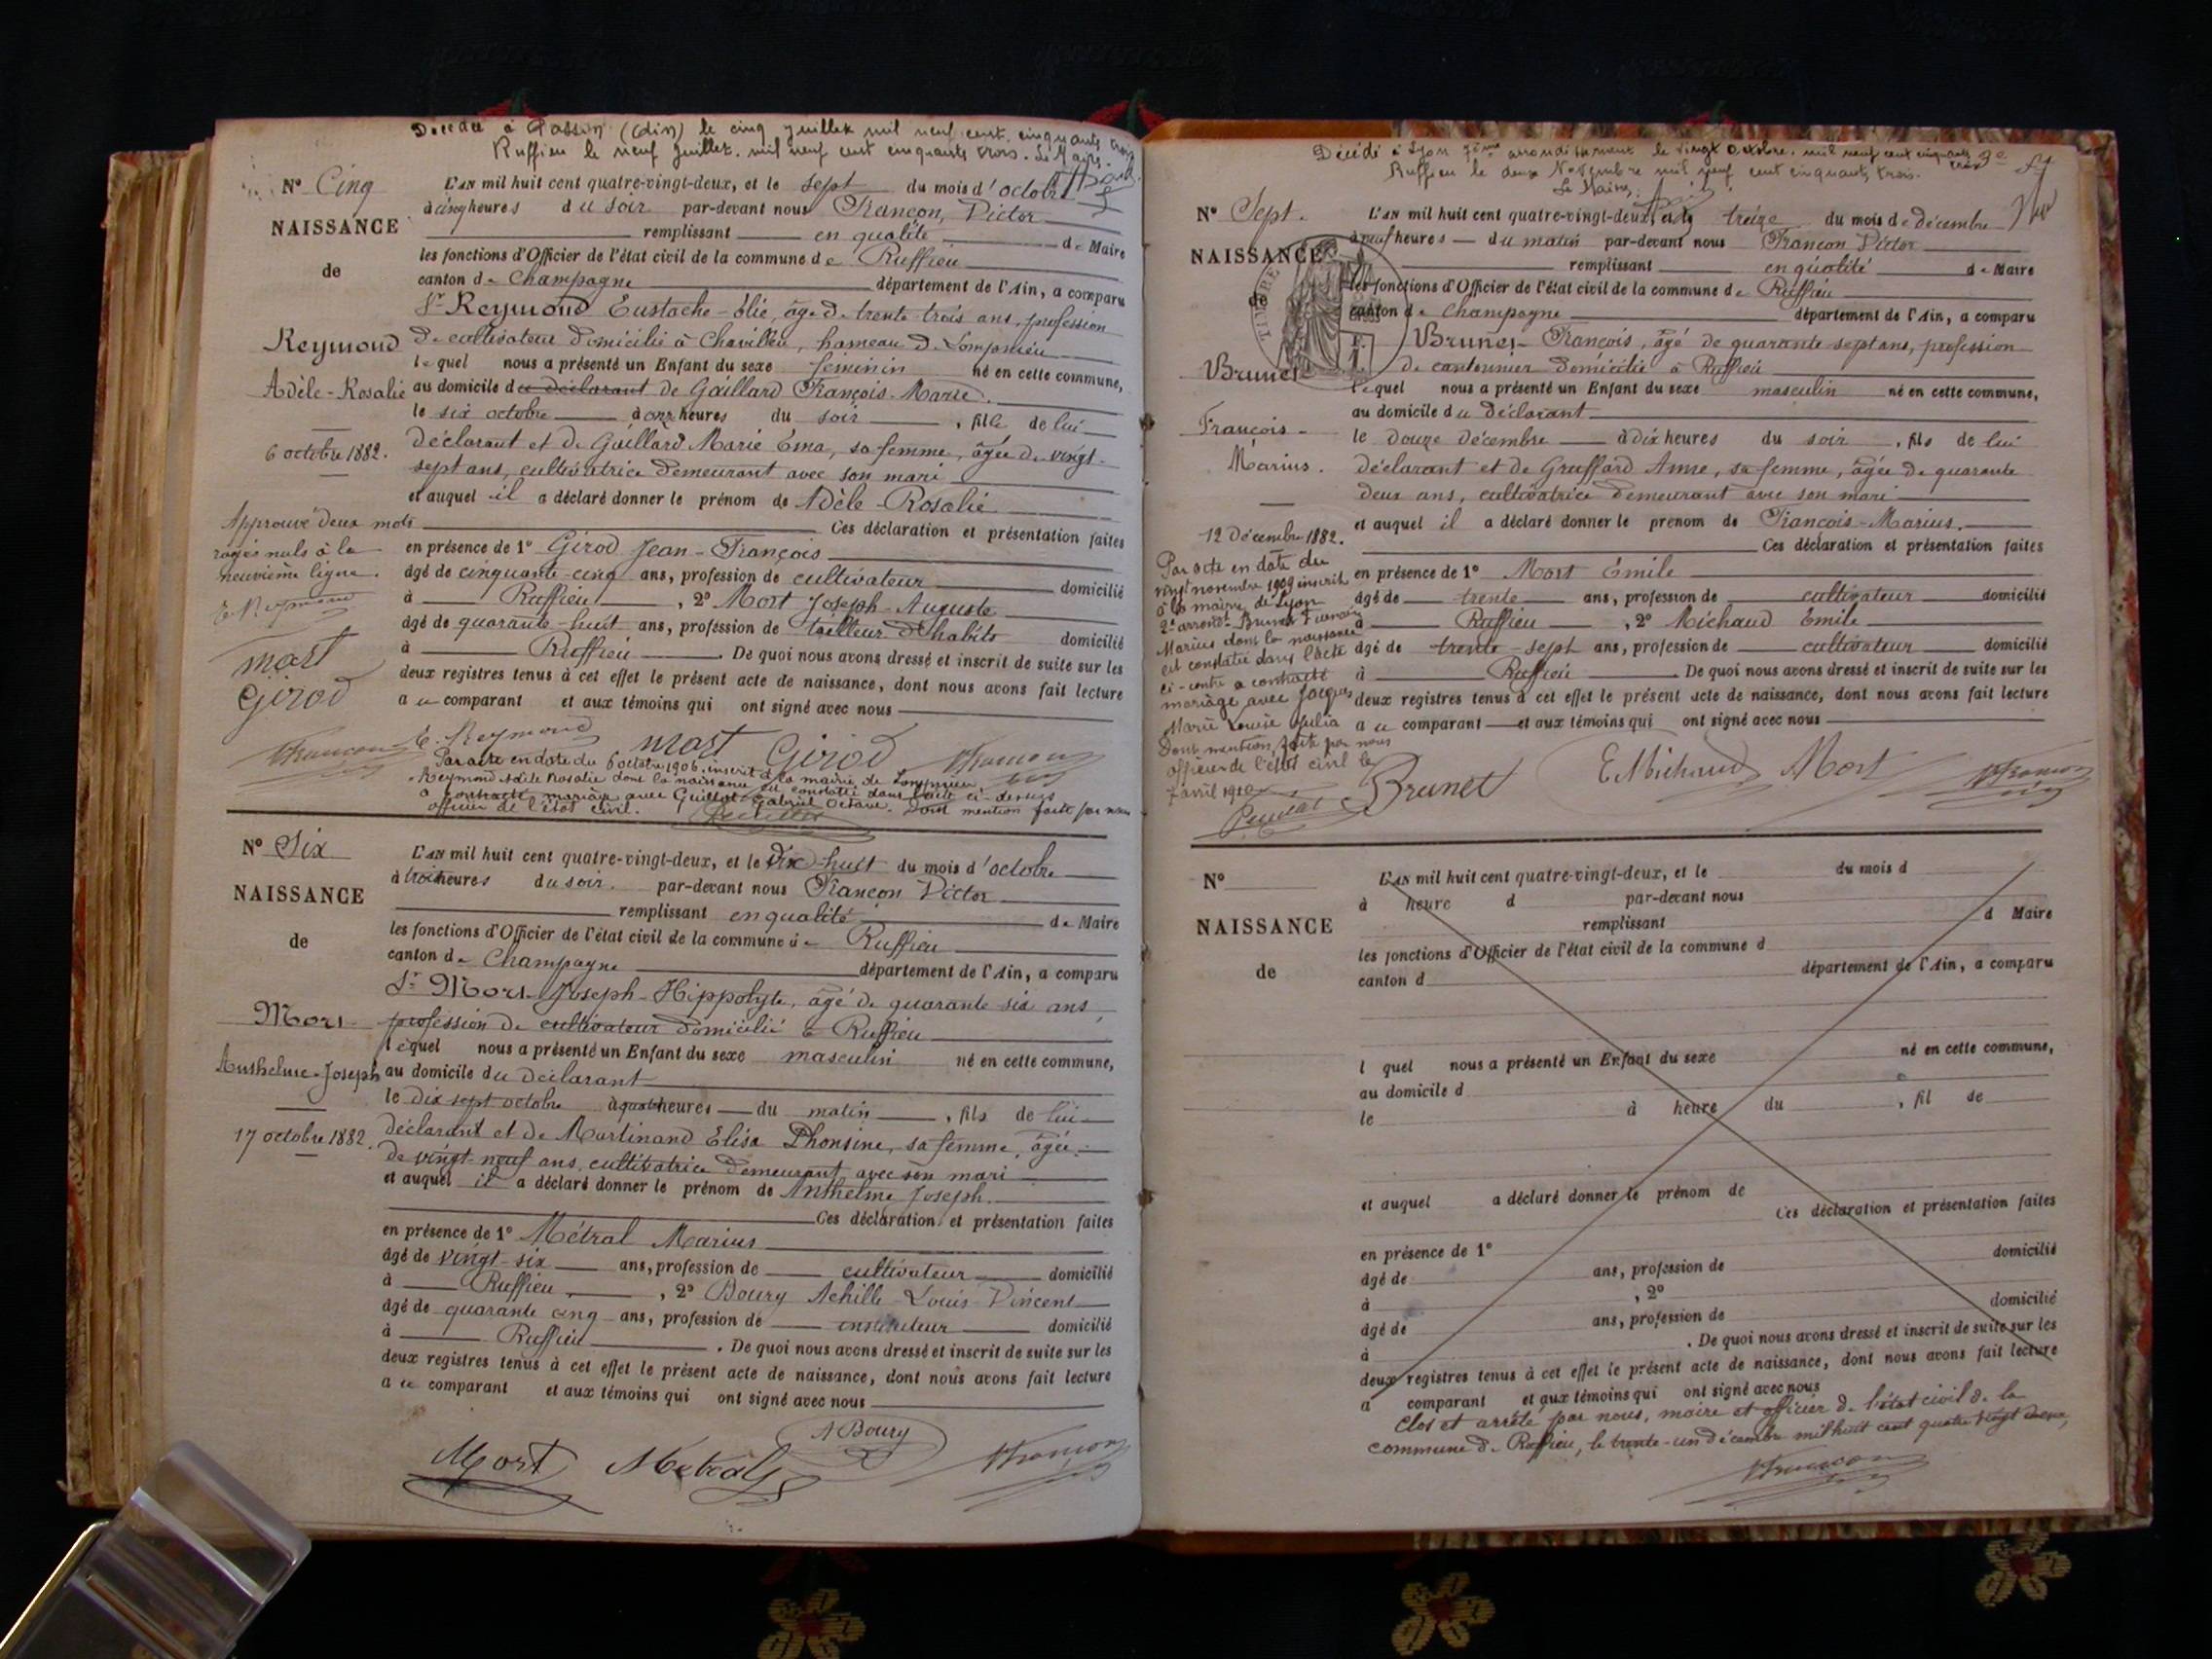 Décédée à Passin (Ain) le cinq juillet mil neuf cent cinquante trois
Ruffieu le neuf juillet mil neuf cent cinquante trois. Le Maire.
N° Cinq
NAISSANCE
de
Reymond
Adèle-Rosalie
6 octobre 1882.
Approuvé deux mots
rayés nuls à la
neuvième ligne.
E. Reymond
Mort
Girod
VFrancon
L'AN mil huit cent quatre-vingt-deux, et le sept du mois d'octobre
à cinq heures du soir par-devant nous Francon, Victor
remplissant en qualité de Maire
les fonctions d'Officier de l'état civil de la commune de Ruffieu
canton de Champagne département de l'Ain, a comparu
Sr Reymond Eustache-Elie, âgé de trente trois ans, profession
de cultivateur domicilié à Chavillieu, hameau de Lompnieu
lequel nous a présenté un Enfant du sexe féminin né en cette commune,
au domicile du déclarant de Gaillard François-Marie.
le six octobre à onze heures du soir, fille de lui
déclarant et de Gaillard Marie Ema, sa femme, âgée de vingt-
sept ans, cultivatrice demeurant avec son mari
et auquel il a déclaré donner le prénom de Adèle-Rosalie
Ces déclaration et présentation faites
en présence de 1° Girod Jean-François
âgé de cinquante-cinq ans, profession de cultivateur domicilié
à Ruffieu, 2° Mort Joseph-Auguste
âgé de quarante-huit ans, profession de tailleur d'habits domicilié
à Ruffieu. De quoi nous avons dressé et inscrit de suite sur les
deux registres tenus à cet effet le présent acte de naissance, dont nous avons fait lecture
au comparant et aux témoins qui ont signé avec nous
E. Reymond Mort Girod VFrancon
Par acte en date du 6 octobre 1906, inscrit à la mairie de Lompnieu
Reymond Adèle Rosalie dont la naissance est constatée dans l'acte ci-dessus
a contracté mariage avec Guillot Gabriel Octave. Dont mention faite par nous
officier de l'état civil.
N° Six
NAISSANCE
de
Mort
Anthelme-Joseph
17 octobre 1882.
L'AN mil huit cent quatre-vingt-deux, et le dix-huit du mois d'octobre
à trois heures du soir. par-devant nous Francon Victor
remplissant en qualité de Maire
les fonctions d'Officier de l'état civil de la commune de Ruffieu
canton de Champagne département de l'Ain, a comparu
Sr Mort Joseph-Hippolyte, âgé de quarante-six ans,
profession de cultivateur domicilié à Ruffieu
lequel nous a présenté un Enfant du sexe masculin né en cette commune,
au domicile du déclarant
le dix sept octobre à quatre heures du matin, fils de lui
déclarant et de Martinand Elisa Phonsine, sa femme, âgée
de vingt-neuf ans, cultivatrice demeurant avec son mari
et auquel il a déclaré donner le prénom de Anthelme Joseph.
Ces déclaration et présentation faites
en présence de 1° Métral Marius
âgé de vingt-six ans, profession de cultivateur domicilié
à Ruffieu, 2° Boury Achille-Louis-Vincent
âgé de quarante cinq ans, profession de instituteur domicilié
à Ruffieu. De quoi nous avons dressé et inscrit de suite sur les
deux registres tenus à cet effet le présent acte de naissance, dont nous avons fait lecture
au comparant et aux témoins qui ont signé avec nous
A Boury
Mort Métral VFrancon
Décédé à Lyon 7ème arrondissement le vingt octobre mil neuf cent cinquante trois
Ruffieu le deux Novembre mil neuf cent cinquante trois.
Le Maire,
N° Sept.
NAISSANCE
de
Brunet
François-
Marius.
12 Décembre 1882.
Par acte en date du
vingt novembre 1909 inscrit
à la mairie de Lyon
2e arrondt Brunet François
Marius dont la naissance
est constatée dans l'acte
ci-contre a contracté
mariage avec Jacques
Marie Louise Julia
Dont mention faite par nous
officier de l'état civil le
7 avril 1910
L'AN mil huit cent quatre-vingt-deux, et le treize du mois de décembre
à neuf heures du matin par-devant nous Francon Victor
remplissant en qualité de Maire
les fonctions d'Officier de l'état civil de la commune de Ruffieu
canton de Champagne département de l'Ain, a comparu
Brunet François, âgé de quarante sept ans, profession
de cantonnier domicilié à Ruffieu
lequel nous a présenté un Enfant du sexe masculin né en cette commune,
au domicile du déclarant
le douze décembre à dix heures du soir, fils de lui
déclarant et de Gruffard Anne, sa femme, âgée de quarante
deux ans, cultivatrice demeurant avec son mari
et auquel il a déclaré donner le prénom de François-Marius.
Ces déclaration et présentation faites
en présence de 1° Mort Émile
âgé de trente ans, profession de cultivateur domicilié
à Ruffieu, 2° Michaud Emile
âgé de trente-sept ans, profession de cultivateur domicilié
à Ruffieu. De quoi nous avons dressé et inscrit de suite sur les
deux registres tenus à cet effet le présent acte de naissance, dont nous avons fait lecture
au comparant et aux témoins qui ont signé avec nous
Brunet EMichaud Mort VFrancon
N°
NAISSANCE
de
L'AN mil huit cent quatre-vingt-deux, et le du mois d
à heure d par-devant nous
remplissant d Maire
les fonctions d'Officier de l'état civil de la commune d
canton d département de l'Ain, a comparu
l quel nous a présenté un Enfant du sexe né en cette commune,
au domicile d
le à heure du , fil de
et auquel a déclaré donner le prénom de
Ces déclaration et présentation faites
en présence de 1° domicilié
âgé de ans, profession de
à , 2°
âgé de ans, profession de domicilié
à . De quoi nous avons dressé et inscrit de suite sur les
deux registres tenus à cet effet le présent acte de naissance, dont nous avons fait lecture
a comparant et aux témoins qui ont signé avec nous
Clos et arrêté par nous, maire et officier de l'état civil de la
commune de Ruffieu, le trente-un décembre mil huit cent quatre vingt deux,
VFrancon